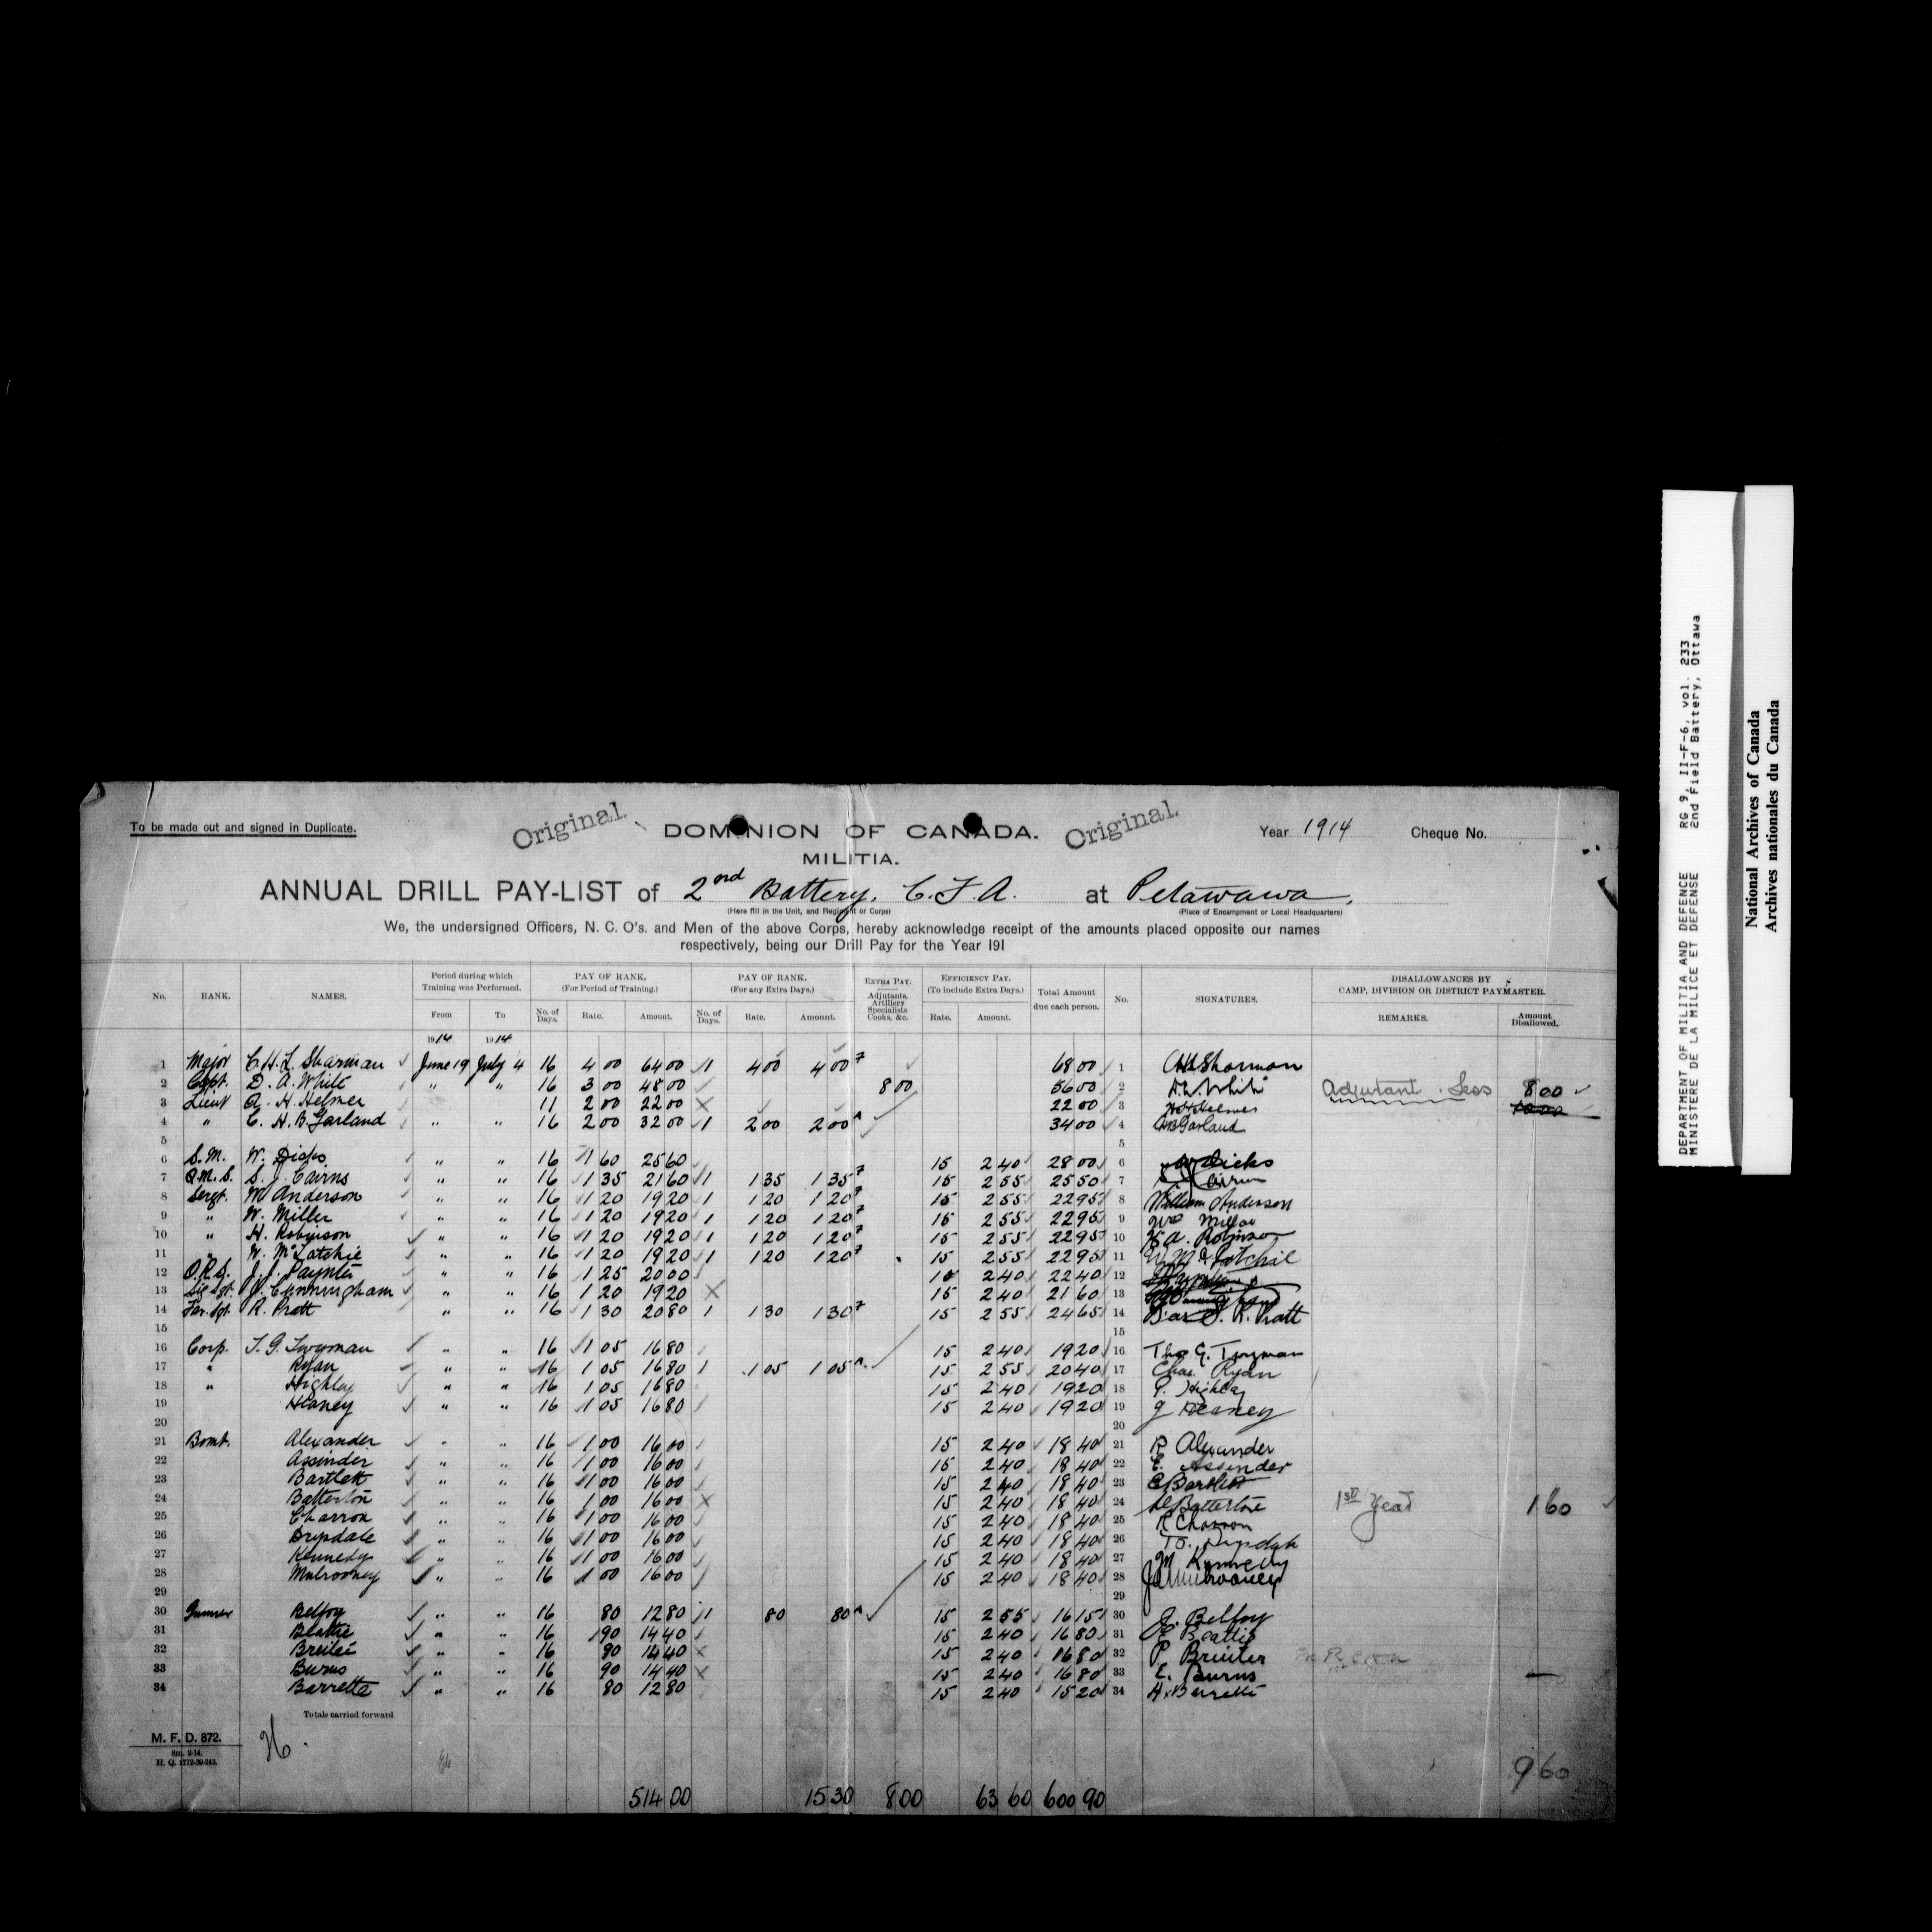 To be made out and signed in Duplicate.
Original.
DOMINION OF CANADA.
Original.
Year 1914 Cheque No.
MILITIA.
ANNUAL DRILL PAY-LIST of 2nd Battery, C.F.A. at Petawawa.
(Here fill in the Unit, and Regiment or Corps) (Place of Encampment or Local Headquarters)
We, the undersigned Officers, N. C. O's. and Men of the above Corps, hereby acknowledge receipt of the amounts placed opposite our names
respectively, being our Drill Pay for the Year 191
No. RANK. NAMES. Period during which Training was Performed. From To PAY OF RANK. (For Period of Training.) No. of Days. Rate. Amount. PAY OF RANK. (For any Extra Days.) No. of Days. Rate. Amount. EXTRA PAY. Adjutants, Artillery Specialists Cooks, &c. EFFICIENCY PAY. (To include Extra Days.) Rate. Amount. Total Amount due each person. No. SIGNATURES. DISALLOWANCES BY CAMP, DIVISION OR DISTRICT PAYMASTER. REMARKS. Amount Disallowed.
1914 1914
1 Major C. H. L. Sharman June 19 July 4 16 4 00 64 00 1 4 00 4 00 68 00 1 CHLSharman
2 Capt. D. A. White " " 16 3 00 48 00 8 00 56 00 2 D.A. White Adjutant. Less 8 00
3 Lieut A. H. Helmer 11 2 00 22 00 22 00 3 AHHelmer 10 00
4 " C. H. B. Garland " " 16 2 00 32 00 1 2 00 2 00 34 00 4 Garland
5 5
6 S.M. W. Dicks " " 16 1 60 25 60 15 2 40 28 00 6 W Dicks
7 Q.M.S. S. J. Cairns " " 16 1 35 21 60 1 1 35 1 35 15 2 55 25 50 7 Cairns
8 Sergt. M Anderson " " 16 1 20 19 20 1 1 20 1 20 15 2 55 22 95 8 William Anderson
9 " W. Miller " " 16 1 20 19 20 1 1 20 1 20 15 2 55 22 95 9 Wm Millar
10 " H. Robinson " " 16 1 20 19 20 1 1 20 1 20 15 2 55 22 95 10 H A. Robinson
11 " W. McLatchie " " 16 1 20 19 20 1 1 20 1 20 15 2 55 22 95 11 W. McLatchie
12 O.R.S. J. J. Paynter " " 16 1 25 20 00 15 2 40 22 40 12
13 Sig Sgt. J. Cunningham " " 16 1 20 19 20 15 2 40 21 60 13
14 Far. Sgt. R. Pratt " " 16 1 30 20 80 1 1 30 1 30 15 2 55 24 65 14 R. Pratt
15 15
16 Corp. T. G. Twyman " " 16 1 05 16 80 15 2 40 19 20 16 Thos G. Twyman
17 " Ryan " " 16 1 05 16 80 1 1 05 1 05 15 2 55 20 40 17 Chas. Ryan
18 " Highley " " 16 1 05 16 80 15 2 40 19 20 18 Highley
19 Heaney " " 16 1 05 16 80 15 2 40 19 20 19 J Heaney
20 20
21 Bomb. Alexander " " 16 1 00 16 00 15 2 40 18 40 21 R Alexander
22 Assinder " " 16 1 00 16 00 15 2 40 18 40 22 E. Assinder
23 Bartlett " " 16 1 00 16 00 15 2 40 18 40 23 C Bartlett
24 Batterton " " 16 1 00 16 00 15 2 40 18 40 24 Batterton 1st Year 1 60
25 Charron " " 16 1 00 16 00 15 2 40 18 40 25 R Charron
26 Drysdale " " 16 1 00 16 00 15 2 40 18 40 26 Drysdale
27 Kennedy " " 16 1 00 16 00 15 2 40 18 40 27 M Kennedy
28 Mulrooney " " 16 1 00 16 00 15 2 40 18 40 28 Mulrooney
29 29
30 Gunner Belfoy " " 16 80 12 80 1 80 80 15 2 55 16 15 30 J. Belfoy
31 Beattie " " 16 90 14 40 15 2 40 16 80 31 Beattie
32 " " 16 90 14 40 15 2 40 16 80 32 P.
33 Burns " " 16 90 14 40 15 2 40 16 80 33 E. Burns
34 Barrette " " 16 80 12 80 15 2 40 15 20 34 H. Barrette
Totals carried forward
M. F. D. 872.
8m. 2-14.
H. Q. 1772-39-243.
9 60
514 00 15 30 8 00 63 60 600 90
DEPARTMENT OF MILITIA AND DEFENCE RG 9, II-F-6, vol. 233
MINISTERE DE LA MILICE ET DEFENSE 2nd Field Battery, Ottawa
National Archives of Canada
Archives nationales du Canada